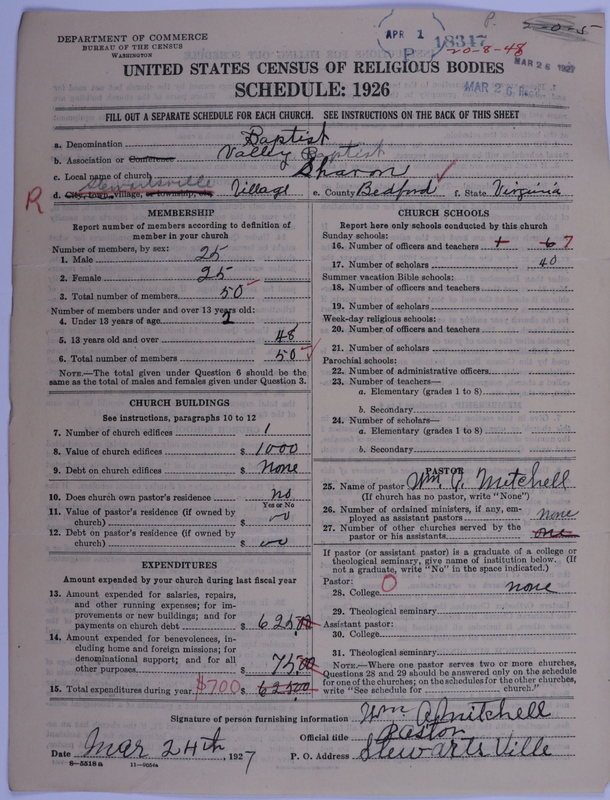 P.
DEPARTMENT OF COMMERCE
BUREAU OF THE CENSUS
WASHINGTON
APR 1
P
18347
20-8-48
MAR 26 1927
MAR 26
UNITED STATES CENSUS OF RELIGIOUS BODIES
SCHEDULE: 1926
FILL OUT A SEPARATE SCHEDULE FOR EACH CHURCH. SEE INSTRUCTIONS ON THE BACK OF THIS SHEET
a. Denomination Baptist
b. Association or Conference Valley Baptist
c. Local name of church Sharon
R d. City, town, village, or township, etc. Stewartsville Village e. County Bedford f. State Virginia
MEMBERSHIP
Report number of members according to definition of
member in your church
Number of members, by sex:
1. Male 25
2. Female 25
3. Total number of members 50
Number of members under and over 13 years old:
4. Under 13 years of age 2
5. 13 years old and over 48
6. Total number of members 50
NOTE.—The total given under Question 6 should be
same as the total of males and females given under Question 3.
CHURCH BUILDINGS
See instructions, paragraphs 10 to 12
7. Number of church edifices 1
8. Value of church edifices $ 1000
9. Debt on church edifices $ None
10. Does church own pastor's residence no
Yes or No
11. Value of pastor's residence (if owned by
church) $
12. Debt on pastor's residence (if owned by
church) $
EXPENDITURES
Amount expended by your church during last fiscal year
13. Amount expended for salaries, repairs,
and other running expenses; for im-
provements or new buildings; and for
payments on church debt $ 625.00
14. Amount expended for benevolences, in-
cluding home and foreign missions; for
denominational support; and for all
other purposes $ 75.00
15. Total expenditures during year $700 $ 625.00
CHURCH SCHOOLS
Report here only schools conducted by this church
Sunday schools:
16. Number of officers and teachers 6 7
17. Number of scholars 40
Summer vacation Bible schools:
18. Number of officers and teachers
19. Number of scholars
Week-day religious schools:
20. Number of officers and teachers
21. Number of scholars
Parochial schools:
22. Number of administrative officers
23. Number of teachers—
a. Elementary (grades 1 to 8)
b. Secondary
24. Number of scholars—
a. Elementary (grades 1 to 8)
b. Secondary
PASTOR
25. Name of pastor Wm. A. Mitchell
(If church has no pastor, write "None")
26. Number of ordained ministers, if any, em-
ployed as assistant pastors none
27. Number of other churches served by the
pastor or his assistants one
If pastor (or assistant pastor) is a graduate of a college or
theological seminary, give name of institution below. (If
not a graduate, write "No" in the space indicated.)
Pastor:
28. College O none
29. Theological seminary
Assistant pastor:
30. College
31. Theological seminary
NOTE.—Where one pastor serves two or more churches,
Questions 28 and 29 should be answered only on the schedule
for one of the churches; on the schedules for the other churches,
write "See schedule for church."
Signature of person furnishing information Wm A Mitchell
Official title Pastor
Date Mar 24th, 1927 P. O. Address Stewarts Ville
8-5518 a 11-9054a